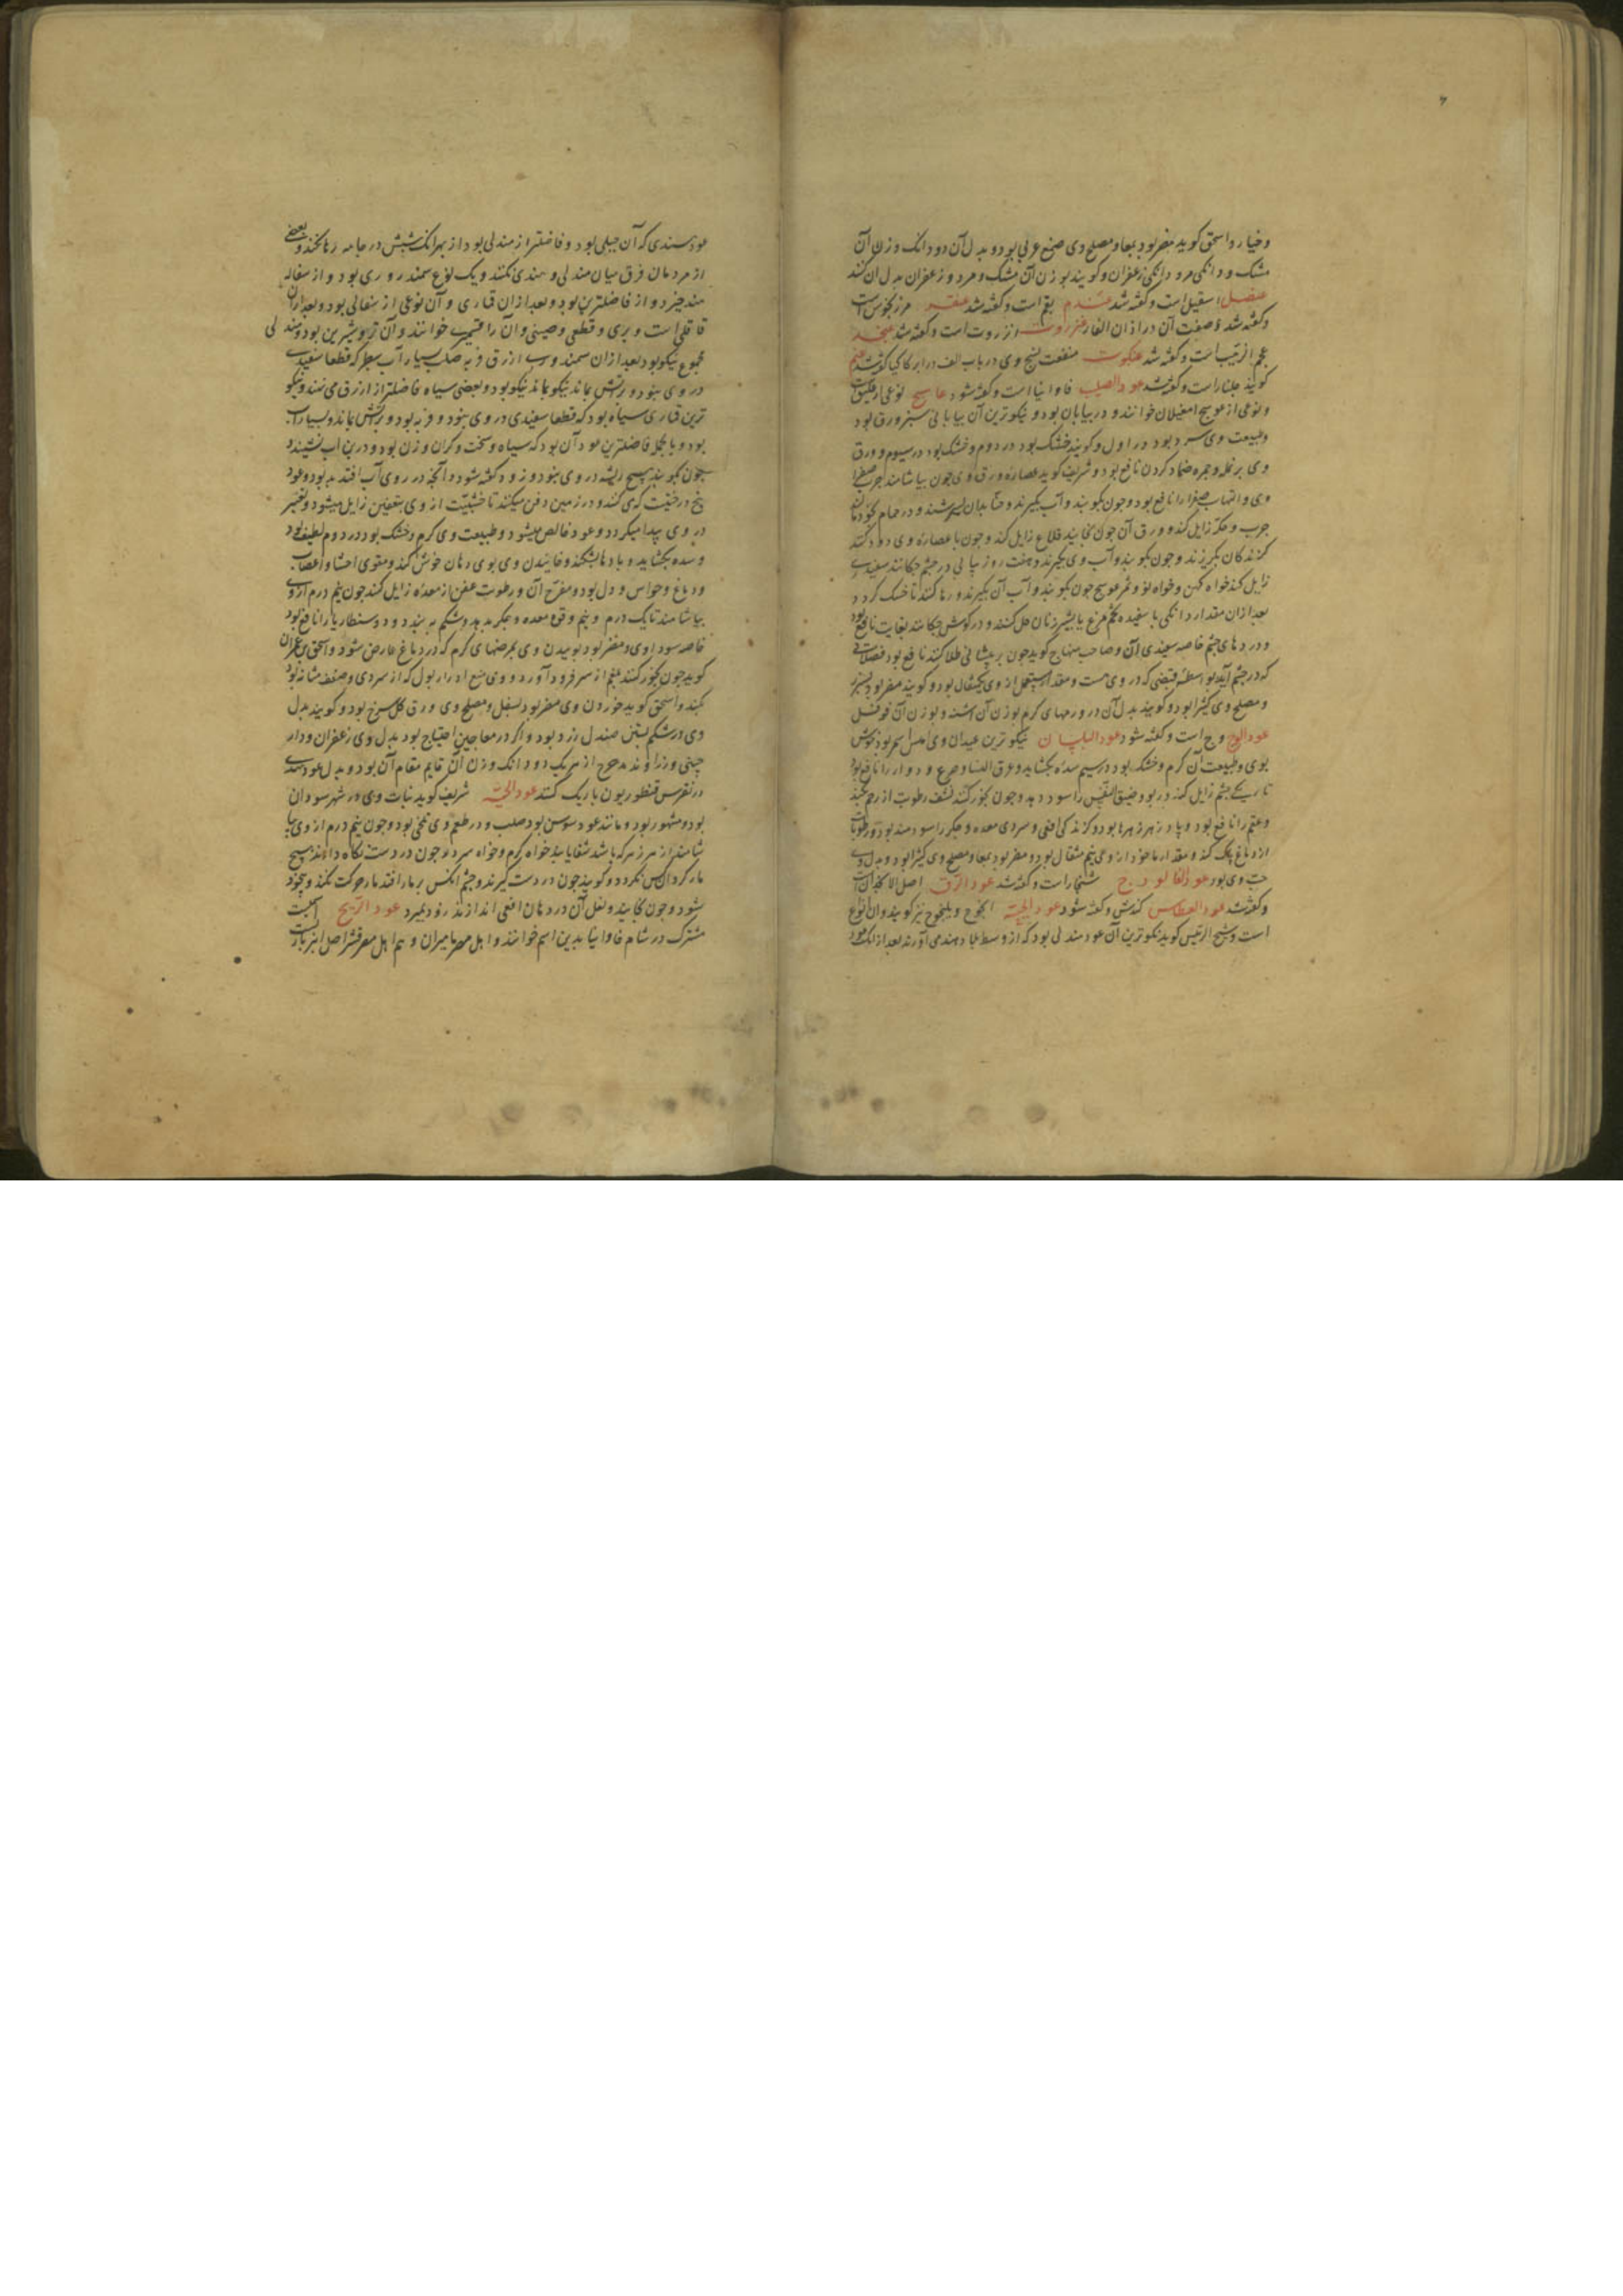 و خیار و اسحق کوید مضر بود بمعا و مصلح وی صمغ عربی بود و بدل آن دو دانک وزن آن
مشک و دانکی مرد دانکی زعفران و کویند بوزن آن مشک و مر و زعفران بدل آن کنند
عنصل اسقیل است و کفته شد عندم بقم است و کفته شد عنقر مرزنجوش است
و کفته شد صفت آن در اذان الفار عنزروت انزروت است و کفته شد عنجد
عجم الزبیب است و کفته شد عنکبوت منفعت نسج وی در باب الف در ابرکاکیا کفته شد عنم
کویند جلنار است و کفته شد عود الصلیب فاوانیا است و کفته شود عوسج نوعی از علیق است
و نوعی از عوسج امغیلان خوانند و در بیابان بود و نیکوترین آن بیابانی سبز ورق بود
و طبیعت وی سرد بود در اول و کویند خشک بود در دوم و خشک بود در سیوم و ورق
وی بر نمله و جمره ضماد کردن نافع بود و شریف کوید عصاره ورق وی چون بیاشامند جرب صفرا
وی و التهاب صفرا را نافع بود و چون بکوبند و آب بکیرند و حنا بدان بسرشند و در حمام بخود مالند
جرب و حکه زایل کند و ورق آن چون بخایند قلاع زایل کند و چون با عصاره وی دود کنند
کزندکان بکریزند و چون بکوبند و آب وی بکیرند و هفت روز پیاپی در چشم چکانند سفیدی
زایل کند خواه کهن و خواه نو و ثمر عوسج چون بکوبند و آب آن بکیرند و رها کنند تا خشک کردد
بعد از آن مقدار دانکی با سفیده تخم مرغ یا بشیر زنان حل کنند و در کوش چکانند بغایت نافع بود
و دردهای چشم خاصه سفیدی آن و صاحب منهاج کوید چون بر پیشانی طلا کنند نافع بود فضلاتی
که در چشم آید بواسطه قبضی که در وی هست و مقدار مستعمل از وی یکمثقال بود و کویند مضر بود بسپرز
و مصلح وی کثیرا بود و کویند بدل آن در ورمهای کرم بوزن آن اشنه و بوزن آن فوفل
عود الوج وج است و کفته شود عود البلسان نیکوترین عیدان وی املس اسمر بود خوش
بوی و طبیعت آن کرم و خشک بود در سیم سده بکشاید و عرق النسا و صرع و دوار را نافع بود
تاریکی چشم زایل کند و ربو و ضیق النفس را سود دهد و چون بخور کنند نشف رطوبت از رحم بکند
و عقم را نافع بود و پادزهر زهرها بود و کزندکی افعی و سردی معده و جکر را سودمند بود و رطوبات
از دماغ پاک کند و مقدار ماخوذ از وی نیم مثقال بود و مضر بود بمعا و مصلح وی کثیرا بود و بدل وی
حب وی بود عود الفالوذج شنجار است و کفته شد عود الرق اصل الانجدان است
و کفته شد عود العطاس کندش و کفته شود عود الحیة النجوج و یلنجوج نیز کویند و آن انواع
است و شیخ الرئیس کوید نیکوترین آن عود مندلی بود که از وسط بلاد هند می آورند بعد از آنک عود
عود هندی که آن جبلی بود و فاضلتر از مندلی بود از بهر آنک شپش در جامه رها نکند و بعضی
از مردمان فرق میان مندلی و هندی نکنند و یک نوع سمندروری بود و از سفاله
هند خیزد و از فاضلترین بود و بعد از آن قماری و آن نوعی از سفالی بود و بعد از آن
قاقلی است و بری و قطعی و صینی و آن را قشمیری خوانند و آن تر و شیرین بود و مندلی
مجموع نیکو بود بعد از آن سمندوری ازرق فربه صلب بسیار آب سطبر که قطعا سفیدی
در وی نبود و بر آتش بماند نیکو بماند نیکو بود و بعضی سیاه فاضلتر از ازرق می نهند و نیکو
ترین قماری سیاه بود که قطعا سفیدی در وی نبود و فربه بود و بر آتش بماند و بسیار آب
بود و بالجمله فاضلترین عود آن بود که سیاه و سخت و کران وزن بود و در بن آب نشیند و
چون بکوبند هیچ ریشه در وی نبود و زود کفته شود و آنچه در روی آب افتد بد بود و عود
بیخ درختیست که می کنند و در زمین دفن میکنند تا خشبیت از وی بتعفین زایل میشود و تغیر
در وی پیدا میکردد و عود خالص میشود و طبیعت وی کرم و خشک بود در دوم لطیف بود
و سده بکشاید و بادها بشکند و خاییدن وی بوی دهان خوش کند و مقوی احشا و اعصاب
و دماغ و حواس و دل بود و مفرح آن و رطوبت عفن از معده زایل کند چون نیم درم از وی
بیاشامند تا یک درم و نیم و قوت معده و جکر بدهد و شکم به بندد و دوسنطاریا را نافع بود
خاصه سوداوی و مضر بود بوییدن وی بمرضهای کرم که در دماغ عارض شود و اسحق بن عمران
کوید چون بخور کنند بلغم از سر فرود آورد و وی منع ادرار بول که از سردی و ضعف مثانه بود
بکند و اسحق کوید خوردن وی مضر بود بسفل و مصلح وی ورق کل سرخ بود و کویند بدل
وی در شکم بستن صندل زرد بود و اکر در معاجین احتیاج بود بدل وی زعفران و دار
چینی و زراوند مدحرج از هر یک دو دانک وزن آن قایم مقام آن بود و بدل عود هندی
در نقرس قنطوریون باریک کنند عود الحیة شریف کوید نبات وی در شهر سودان
بود و مشهور بود و مانند عود سوسن بود صلب و در طعم وی تلخی بود و چون نیم درم از وی بیا
شامند از هر زهر که باشد شفا یابند خواه کرم و خواه سرد و چون در دست نکاه دارند هیچ
مار کرد آنکس نکردد و کویند چون در دست کیرند و چشم آنکس بر مار افتد مار حرکت نکند و بیخود
شود و چون بخایند و تفل آن در دهان افعی اندازند زود بمیرد عود الریح اسمیست
مشترک در شام فاوانیا بدین اسم خوانند و اهل مصر مامیران و هم اهل مصر قشر اصل انبرباریس